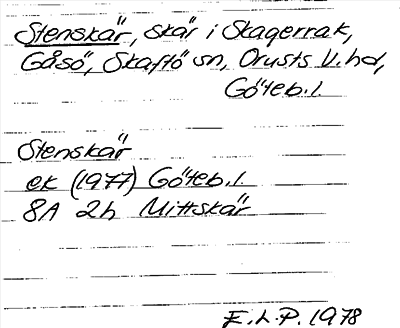 Stenskär, skär i Skagerrak,
Gåsö, Skaftö sn, Orusts V. hd,
Göteb. l.
Stenskär
ek (1977) Göteb. l.
8A 2h Mittskär
E. L. P. 1978